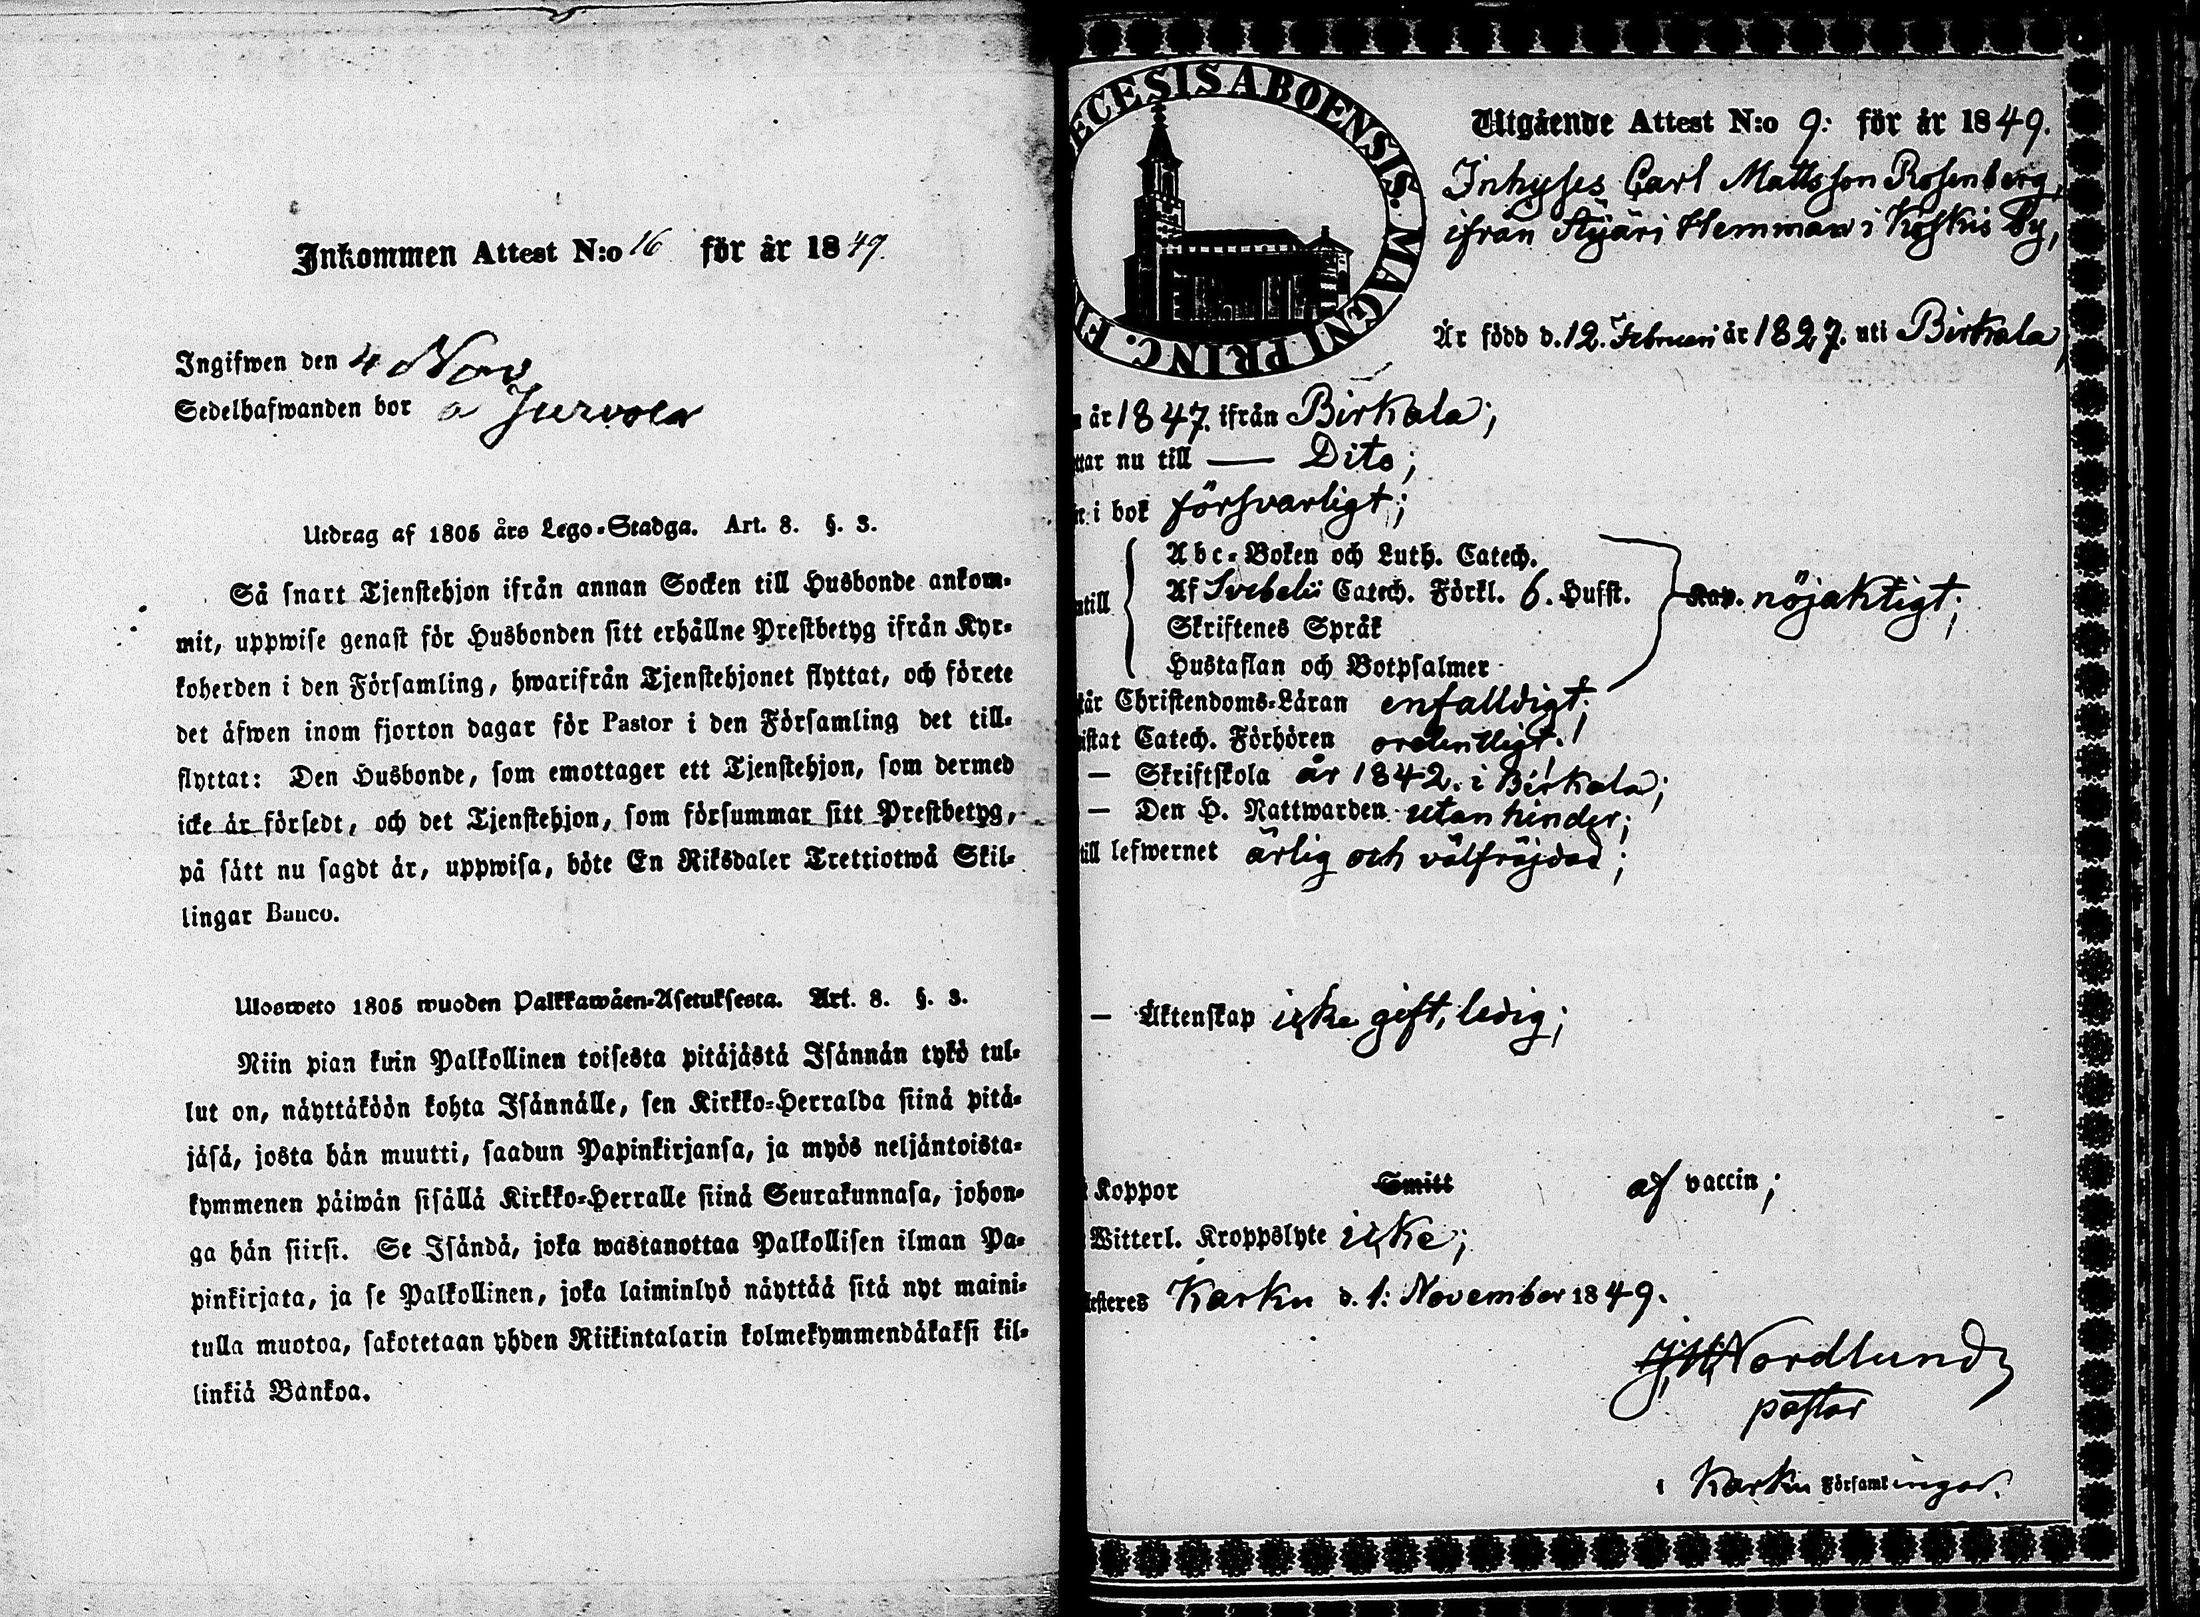 Inkommen Attest N:o 16 för år 1849.
Ingifwen den 4 Nov
Sedelhafwanden bor a Jurvola
Utdrag af 1805 års Lego-Stadga. Art. 8. §. 3.
Så snart Tjenstehjon ifrån annan Socken till Husbonde ankom-
mit, uppwise genast för Husbonden sitt erhållne Prestbetyg ifrån Kyr-
koherden i den Församling, hwarifrån Tjenstehjonet flyttat, och förete
det äfwen inom fjorton dagar för Pastor i den Församling det till-
flyttat: Den Husbonde, som emottager ett Tjenstehjon, som dermed
icke är försedt, och det Tjenstehjon, som försummar sitt Prestbetyg,
på sätt nu sagdt är, uppwisa, böte En Riksdaler Trettiotwå Skil-
lingar Banco.
Ulosweto 1805 wuoden Palkkawäen-Asetuksesta. Art. 8. §. 3.
Niin pian kuin Palkollinen toisesta pitäjästä Isännän tykö tul-
lut on, näyttäköön kohta Isännälle, sen Kirkko-Herralda siinä pitä-
jäsä, josta hän muutti, saadun Papinkirjansa, ja myös neljäntoista-
kymmenen päiwän sisällä Kirkko-Herralle siinä Seurakunnasa, johon-
ga hän siirsi. Se Isändä, joka wastanottaa Palkollisen ilman Pa-
pinkirjata, ja se Palkollinen, joka laiminlyö näyttää sitä nyt maini-
tulla muotoa, sakotetaan yhden Riikintalarin kolmekymmendäkaksi kil-
linkiä Bankoa.
ECESIS ABOENSIS. MAGNI PRINC. FI
Utgående Attest N:o 9: för år 1849.
Inhyses Carl Mattsson Rosenberg,
ifrån Äijäri Hemman i Koskis by,
Är född d. 12. Februari år 1827. uti Birkala,
år 1847. ifrån Birkala;
ttar nu till — Dito;
i bok försvarligt;
Abc-Boken och Luth. Catech.
Af Svebelii Catech. Förkl. 6. Hufst.
ntill Kap. nöjaktigt;
Skriftenes Språk
Hustaflan och Botpsalmer
tår Christendoms-Läran enfalldigt;
istat Catech. Förhören ordentligt;
— Skriftskola år 1842. i Birkala;
— Den H. Nattwarden utan hinder;
till lefwernet ärlig och välfräjdad;
— Äktenskap icke gift, ledig;
Koppor Smitt af vaccin;
Witterl. Kroppslyte icke;
testeres Karku d. 1: November 1849.
J. H. Nordlund
pastor
i Karku Församlingar.